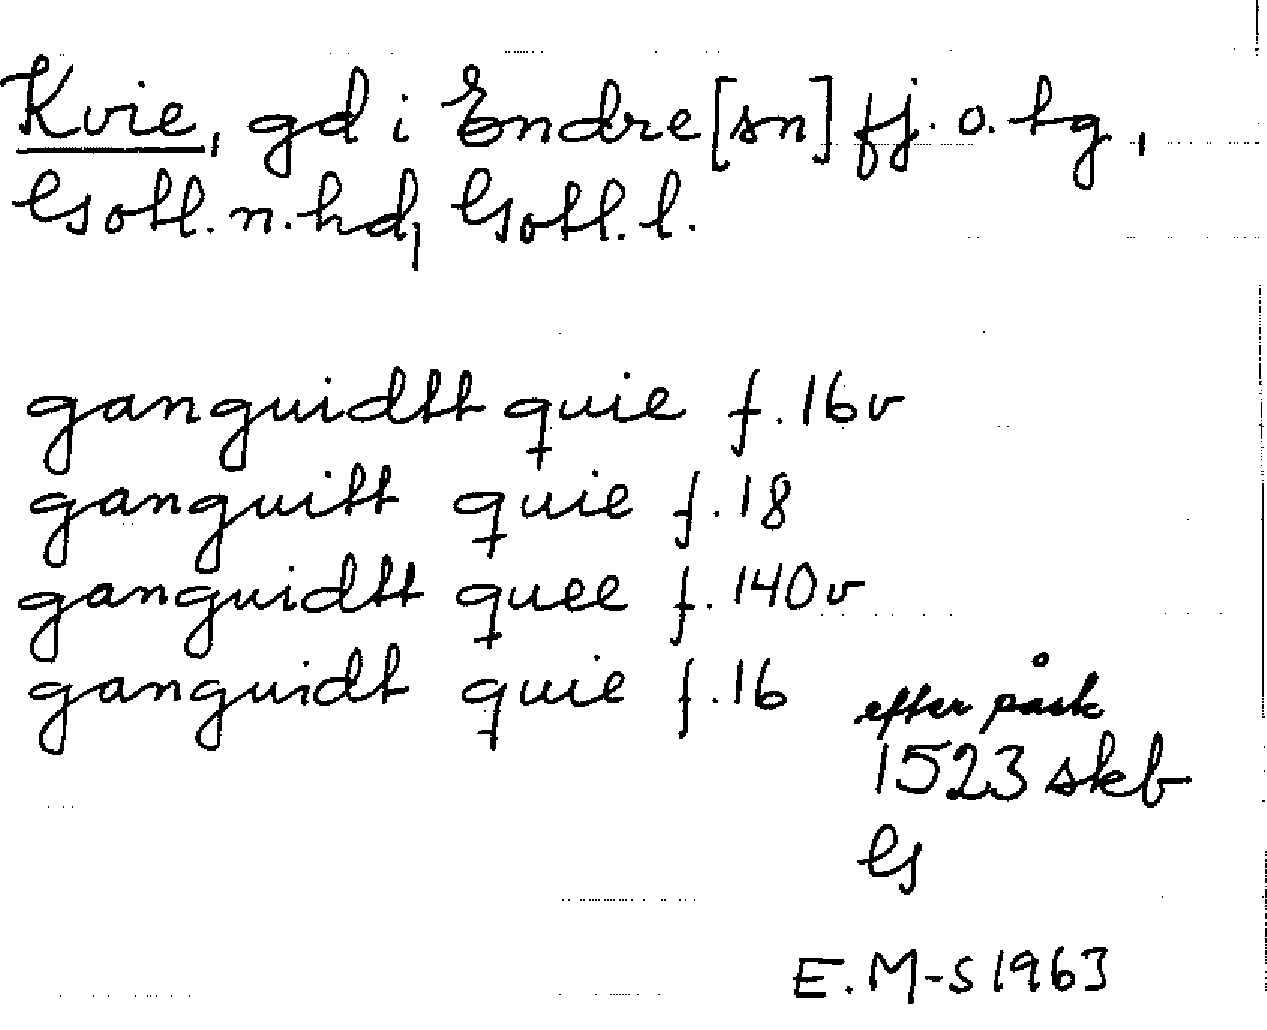 Kvie, gd i Endre [sn] fj. o. tg,
Gotl. n. hd, Gotl. l.
ganguidtt quie f. 16v
ganguitt quie f. 18
ganguidtt quee f. 140v
ganguidt quie f. 16
efter påsk
1523 skb
G
E. M-S 1963